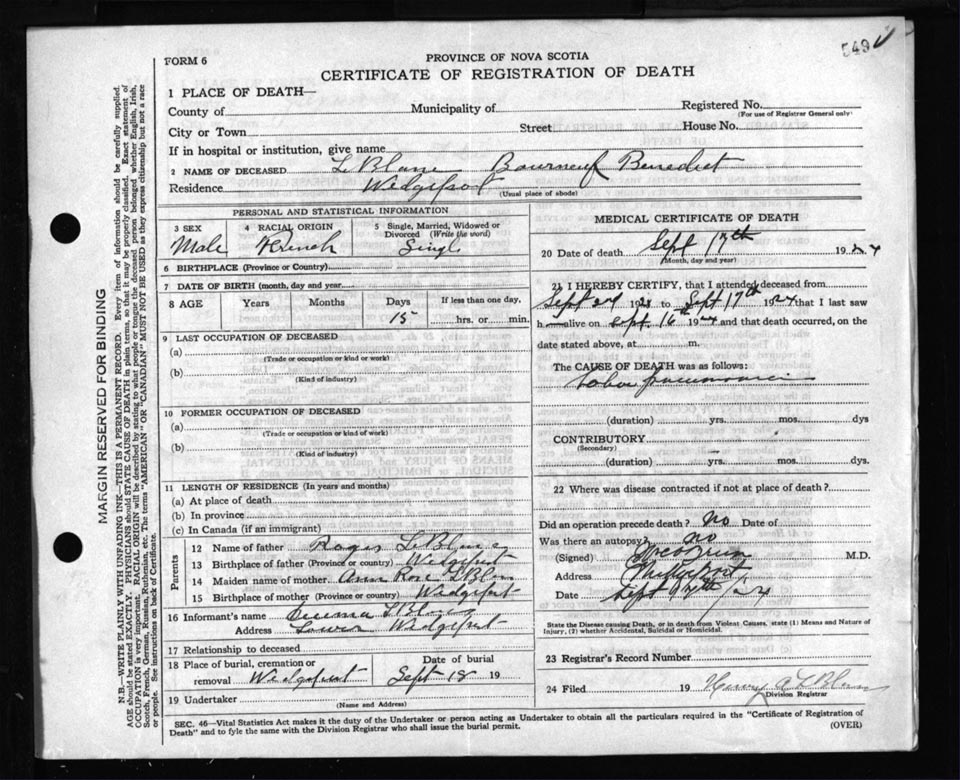 549
FORM 6
PROVINCE OF NOVA SCOTIA
CERTIFICATE OF REGISTRATION OF DEATH
1 PLACE OF DEATH—
County of Municipality of Registered No.
(For use of Registrar General only)
City or Town Street House No.
If in hospital or institution, give name
2 NAME OF DECEASED LeBlanc Bourneuf Benedict
Residence Wedgeport
(Usual place of abode)
PERSONAL AND STATISTICAL INFORMATION
3 SEX 4 RACIAL ORIGIN 5 Single, Married, Widowed or Divorced (Write the word)
Male French Single
6 BIRTHPLACE (Province or Country)
7 DATE OF BIRTH (month, day and year)
8 AGE Years Months Days If less than one day,
15 hrs. or min.
9 LAST OCCUPATION OF DECEASED
(a)
(Trade or occupation or kind of work)
(b)
(Kind of industry)
10 FORMER OCCUPATION OF DECEASED
(a)
(Trade or occupation or kind of work)
(b)
(Kind of industry)
11 LENGTH OF RESIDENCE (In years and months)
(a) At place of death
(b) In province
(c) In Canada (if an immigrant)
Parents
12 Name of father LeBlanc
13 Birthplace of father (Province or country) Wedgeport
14 Maiden name of mother Ann Rose LeBlanc
15 Birthplace of mother (Province or country) Wedgeport
16 Informant's name LeBlanc
Address Lower Wedgeport
17 Relationship to deceased
18 Place of burial, cremation or removal Wedgeport Date of burial Sept 18 19
19 Undertaker
(Name and Address)
MEDICAL CERTIFICATE OF DEATH
20 Date of death Sept 17th 1924
(Month, day and year)
21 I HEREBY CERTIFY, that I attended deceased from
Sept 192 to Sept 17th 1924 that I last saw
h alive on Sept. 16th 1924 and that death occurred, on the
date stated above, at m.
The CAUSE OF DEATH was as follows:
Lobar pneumonia
(duration) yrs. mos. dys
CONTRIBUTORY
(Secondary)
(duration) yrs. mos. dys.
22 Where was disease contracted if not at place of death?
Did an operation precede death? No Date of
Was there an autopsy? No
(Signed) M.D.
Address
Date Sept 17th/24
State the Disease causing Death, or in death from Violent Causes, state (1) Means and Nature of
Injury, (2) whether Accidental, Suicidal or Homicidal.
23 Registrar's Record Number
24 Filed 19 Henry A LeBlanc
Division Registrar
SEC. 46—Vital Statistics Act makes it the duty of the Undertaker or person acting as Undertaker to obtain all the particulars required in the "Certificate of Registration of
Death" and to fyle the same with the Division Registrar who shall issue the burial permit.
(OVER)
MARGIN RESERVED FOR BINDING
N.B.—WRITE PLAINLY WITH UNFADING INK—THIS IS A PERMANENT RECORD. Every item of information should be carefully supplied.
AGE should be stated EXACTLY. PHYSICIANS should STATE CAUSE OF DEATH in plain terms, so that it may be properly classified. Exact statement of
OCCUPATION is very important. RACIAL ORIGIN will be described by stating to what people or tongue the deceased person belonged whether English, Irish,
Scotch, French, German, Russian, Ruthenian, etc. The terms "AMERICAN" or "CANADIAN" MUST NOT BE USED as they express citizenship but not a race
or people. See instructions on back of Certificate.